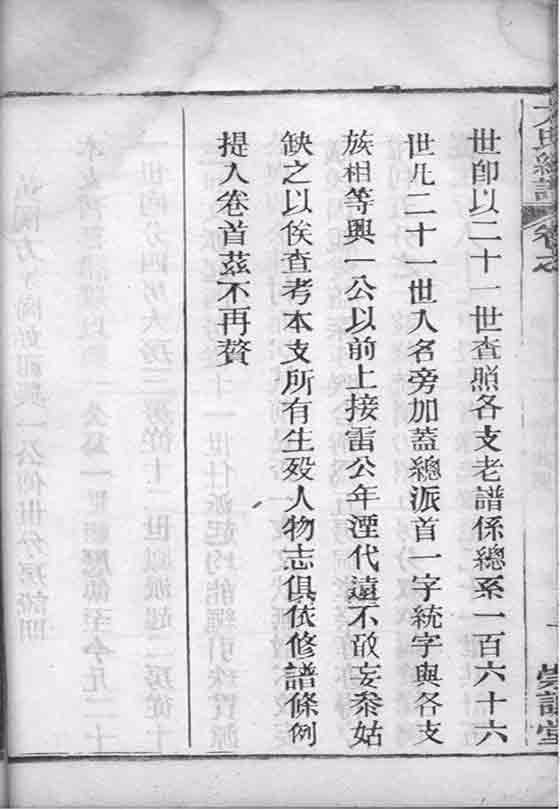 世卽以二十一世查照各支老譜係總系一百六十六
世凡二十一世入名旁加蓋總派首一字統字與各支
族相等興一公以前上接雷公年湮代遠不敢妄叅姑
缺之以俟查考本支所有生殁人物志俱依修譜條例
提入卷首茲不再贅